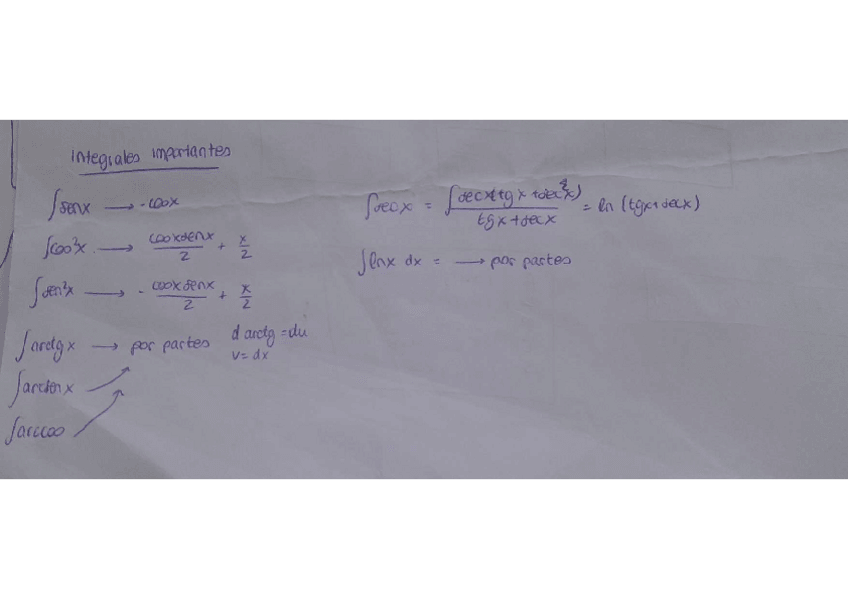 integrales importantes
∫senx → -cosx
∫cos²x → cosxsenx/2 + x/2
∫sen²x → - cosxsenx/2 + x/2
∫arctg x → por partes d arctg = du
v = dx
∫arcsen x
∫arccos
∫secx = ∫ secx(tgx + sec²x) / tgx + secx = ln (tgx + secx)
∫lnx dx = → por partes